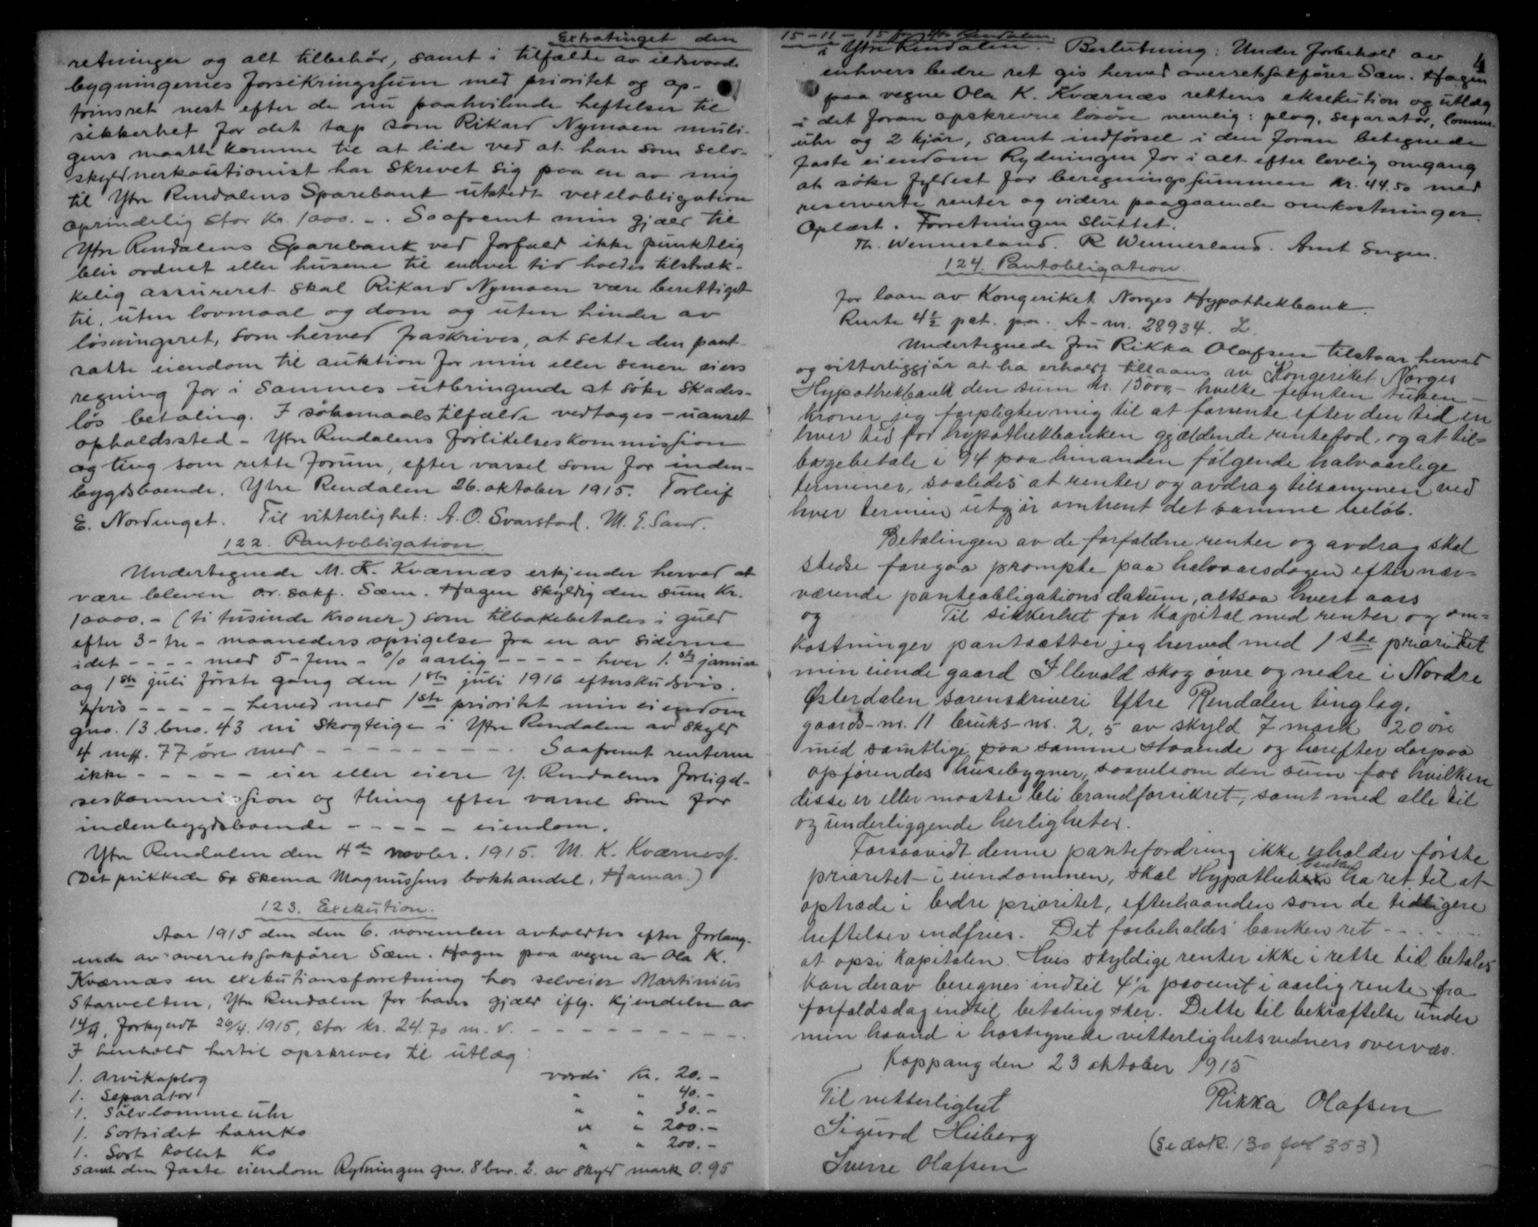 Extratinget den
retninger og alt tilbehör, samt i tilfælde av ildsvaade
bygningernes forsikringssum med prioritet og op-
trinsret nest efter de nu paahvilende heftelser til
sikkerhet for det tap som Rikard Nymoen muli-
gens maatte komme til at lide ved at han som selv-
skyldnerkautionist har skrevet sig paa en av mig
til Ytre Rendalens Sparebank utstedt vexelobligation
oprindelig stor kr. 1000.-. Saafremt min gjæld til
Ytre Rendalens Sparebank ved forfald ikke punktlig
blir ordnet eller husene til enhver tid holdes tilstræk-
kelig assureret skal Rikard Nymoen være berettiget
til, uten lovmaal og dom og uten hinder av
løsningsret, som herved fraskrives, at sette den pant-
satte eiendom til auktion for min eller senere eiers
regning for i sammes utbringende at söke skades-
lös betaling. I söksmaalstilfælde vedtages - uanset
opholdssted - Ytre Rendalens forlikelseskommission
og ting som rette forum, efter varsel som for inden-
bygdsboende. Ytre Rendalen 26. oktober 1915. Torleif
E. Nordenget. Til vitterlighet: A. O. Svarstad. M. E. Sand.
122. Pantobligation
Undertegnede M. K. Kværnæs erkjender herved at
være bleven or. sakf. Sæm. Hagen skyldig den sum Kr.
10000.- (ti tusinde kroner) som tilbakebetales i guld
efter 3 - tre - maaneders opsigelse fra en av siderne
idet - - - - med 5 - fem - % aarlig - - - - - hver 1.ste januar
og 1ste juli förste gang den 1ste juli 1916 efterskudsvis.
Hvis - - - - - herved med 1ste prioritet min eiendom
gno. 13 bno. 43 ni Skogteige i Ytre Rendalen av skyld
4 mk. 77 öre med - - - - - - - - Saafremt renterne
ikke - - - - - eier eller eiere Y. Rendalens forligel-
seskommission og thing efter varsel som for
indenbygdsboende - - - - - eiendom.
Ytre Rendalen den 4de novbr. 1915. M. K. Kværnæs.
(Det prikkede se skema Magnussens bokhandel, Hamar.)
123. Execution.
Aar 1915 den den 6. november avholdtes efter forlang-
ende av overretssakförer Sæm. Hagen paa vegne av Ola K.
Kværnæs en exekutionsforretning hos selveier Martinius
Starvelten, Ytre Rendalen for hans gjæld iflg. kjendelse av
14/4, forkyndt 20/4. 1915, stor kr. 24.70 m. v. - - - - - - - -
I henhold hertil opskreves til utlæg:
1. Arvikaplog værdi kr. 20.-
1. Separator " " 40.-
1. Sölvlommeuhr " " 30.-
1. Sortsidet barnko " " 200.-
1. Sort kollet ko " " 200.-
samt den faste eiendom Rydningen gno. 8 bno. 2. av skyld mark 0.95
15-11-15 for Ytre Rendalen.
4
i Ytre Rendalen. Beslutning: Under forbehold av
enhvers bedre ret gis herved overretssakförer Sæm. Hagen
paa vegne Ola K. Kværnæs rettens eksekution og utlæg
i det foran opskrevne lösöre nemlig: plog, separator, lomme-
uhr og 2 kjör, samt indförsel i den foran betegnede
faste eiendom Rydningen for i alt efter lovlig omgang
at söke fyldest for beregningssummen kr. 44.50 med
reserverte renter og videre paagaaende omkostninger.
Oplæst. Forretningen sluttet.
Th. Wennersland. R Wennersland. Arnt Engen.
124. Pantobligation
for laan av Kongeriket Norges Hypothekbank.
Rente 4½ pct. pa. A-nr. 28934. L.
Undertegnede fru Rikka Olafsen tilstaar herved
og vitterliggjör at ha erholdt tillaans av Kongeriket Norges
Hypothekbank den sum kr. 13000,- hvilke tretten tusen -
kroner jeg forpligter mig til at forrente efter den til en
hver tid for hypothekbanken gjældende rentefod, og at til-
bagebetale i 94 paa hinanden følgende halvaarlige
terminer, saaledes at renter og avdrag tilsammen ved
hver termin utgjør omtrent det samme beløb.
Betalingen av de forfaldne renter og avdrag skal
stedse foregaa prompte paa halvaarsdagen efter nær-
værende panteobligations datum, altsaa hvert aars
og Til sikkerhet for kapital med renter og om-
kostninger pantsætter jeg herved med 1ste prioritet
min eiende gaard Illevold skog övre og nedre i Nordre
Østerdalen sorenskriveri Ytre Rendalen tinglag.
gaards-nr. 11 bruks-nr. 2, 5 av skyld 7 mark 20 öre
med samtlige paa samme staaende og herefter derpaa
opförendes husebygner, saavelsom den sum for hvilken
disse er eller maatte bli brandforsikret, samt med alle til
og underliggende herligheter.
Forsaavidt denne pantefordring ikke erholder første
prioritet i eiendommen, skal Hypothekbanken ha ret til at
optræde i bedre prioritet, efterhaanden som de tidligere
heftelser indfries. Det forbeholdes banken ret - - - - -
at opsi kapitalen. Hvis skyldige renter ikke i rette tid betales
kan derav beregnes indtil 4½ procent i aarlig rente fra
forfaldsdag indtil betaling sker. Dette til bekræftelse under
min haand i hostegnede vitterlighetsvidners overvær.
Koppang den 23 oktober 1915
Til vitterlighet Rikka Olafsen
Sigurd Huberg
Sverre Olafsen (Se dok. 130 fol 353)